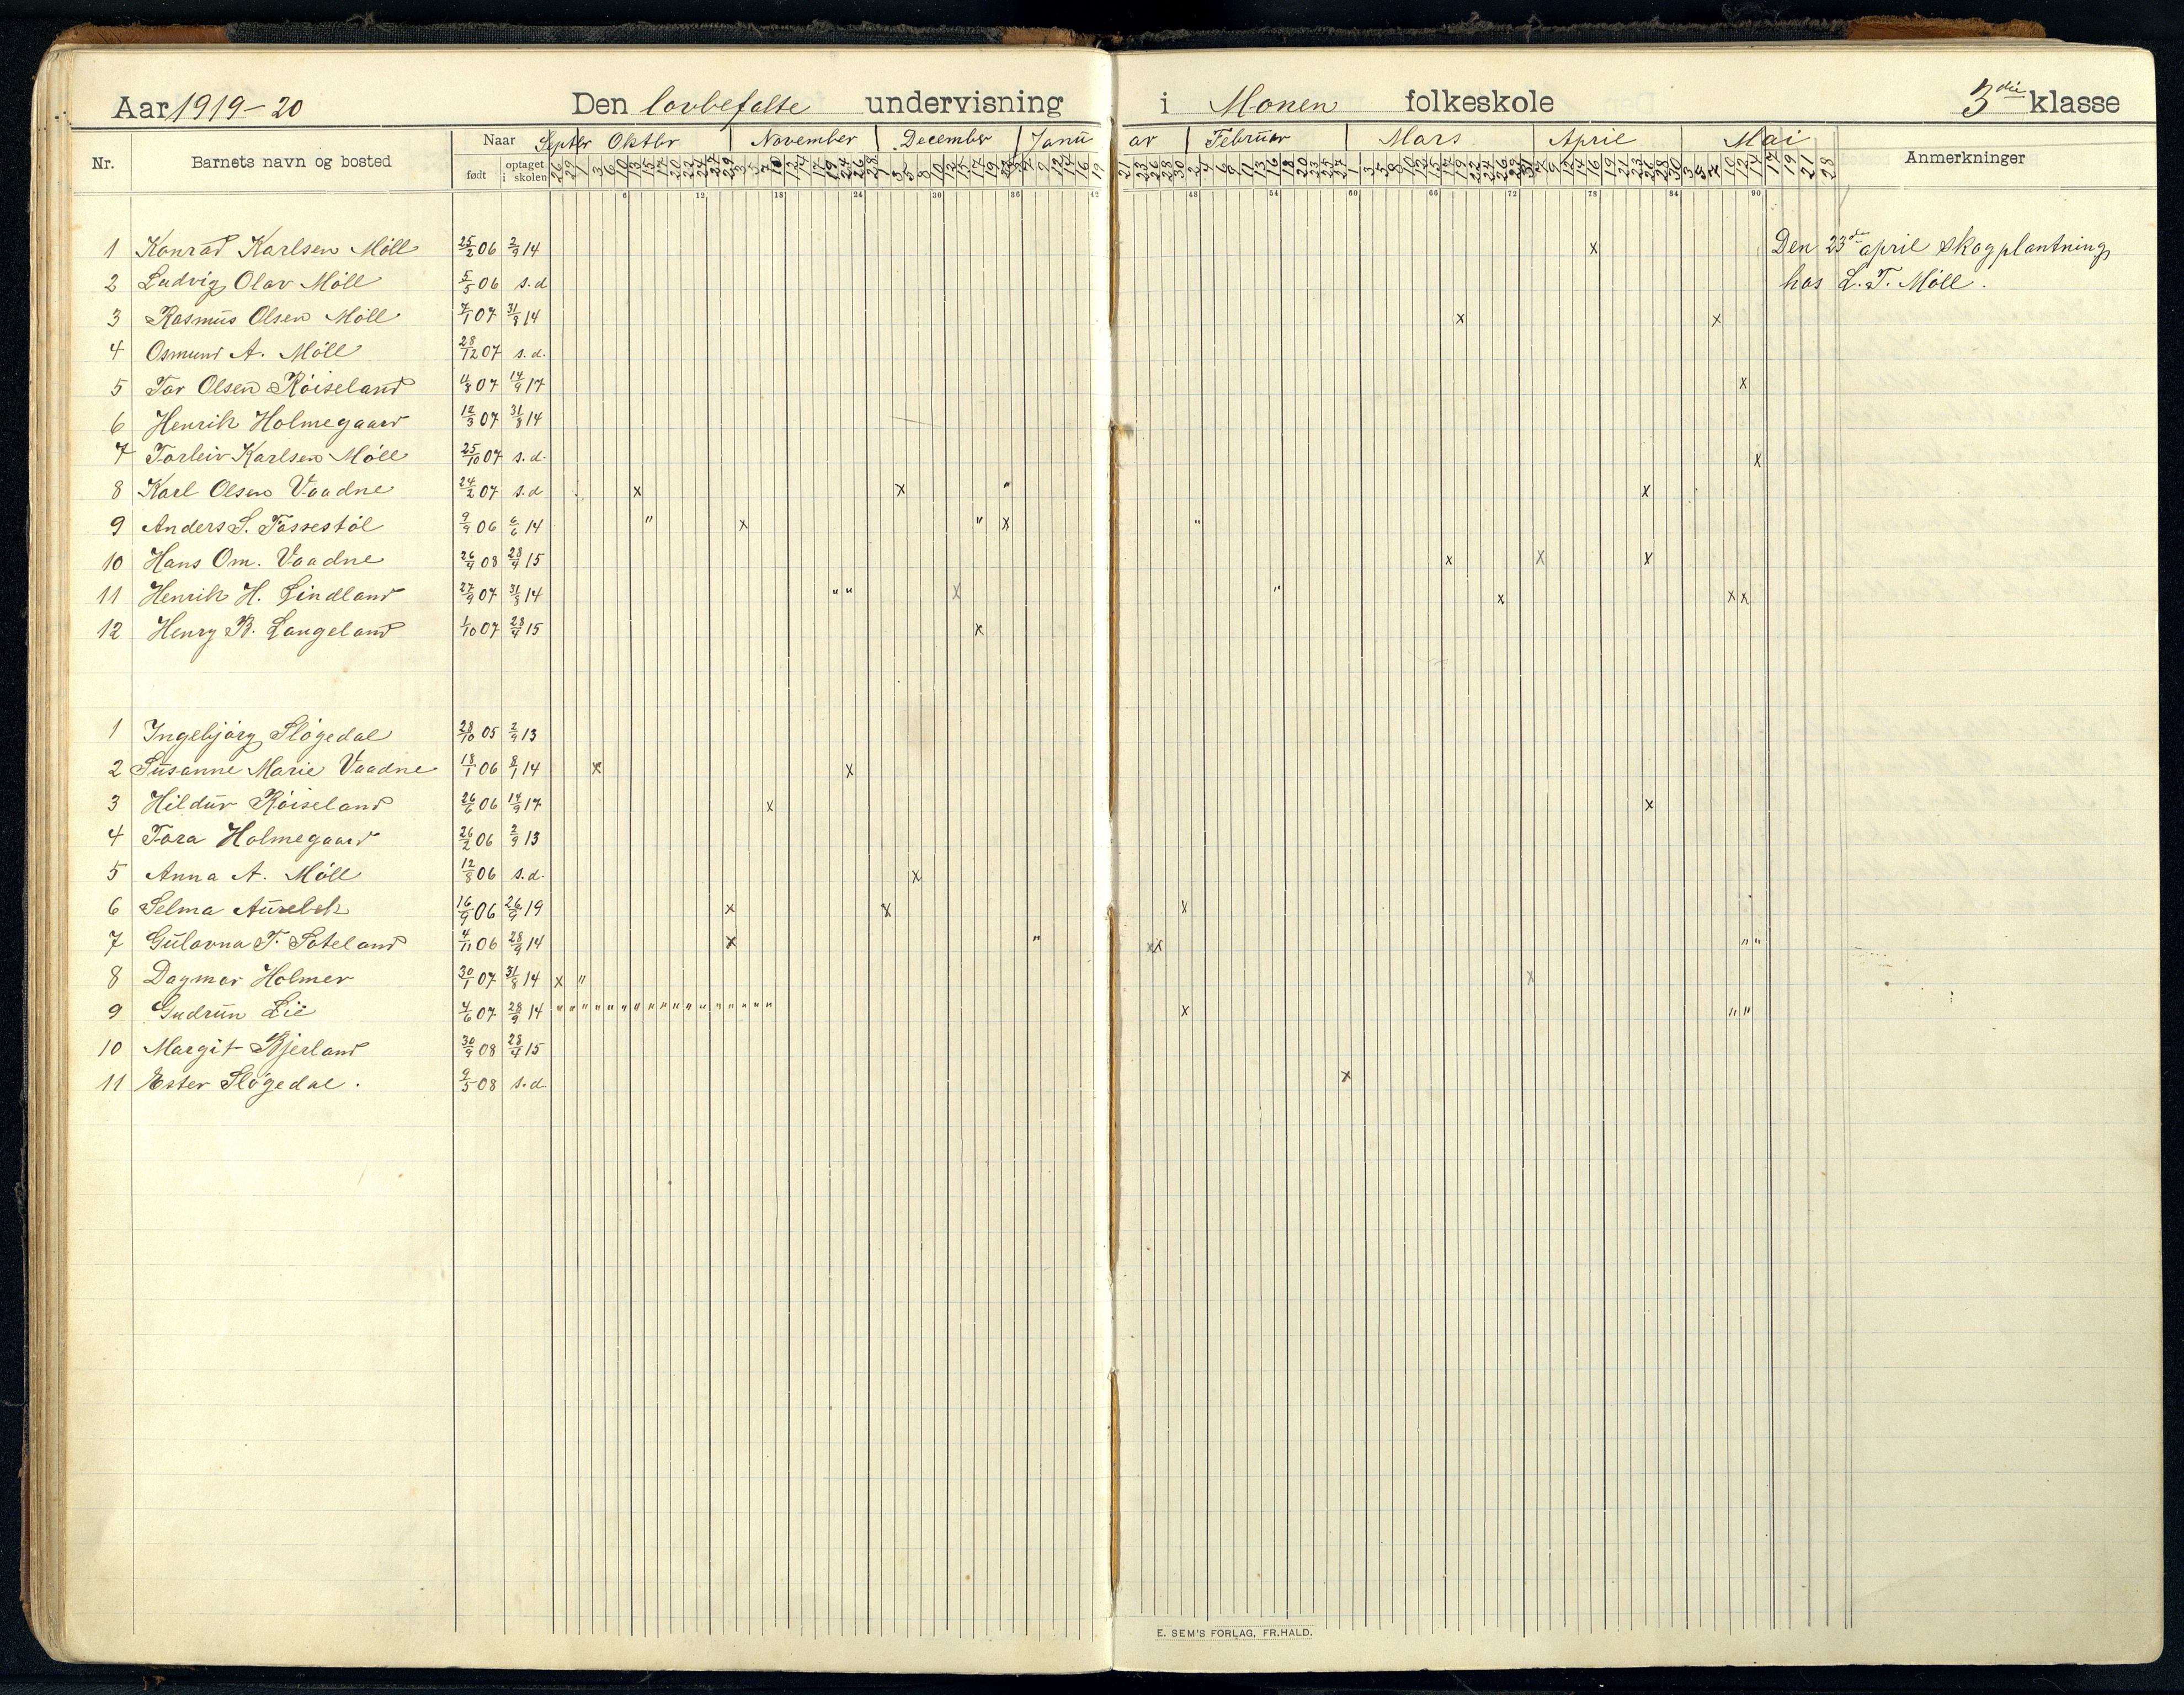 Aar 1919-20 Den lovbefalte undervisning i Monen folkeskole 3die klasse
Nr. Barnets navn og bosted Naar født optaget i skolen Septbr Oktbr November December Janu ar Februar Mars April Mai Anmerkninger
6 12 18 24 30 36 42 48 54 60 66 72 78 84 90
1 Konrad Karlsen Möll 25/2 06 2/9 14 x Den 23de april skogplantning
2 Ludvig Olav Möll 5/5 06 s.d hos L. T. Möll.
3 Rasmus Olsen Möll 7/1 07 31/8 14 x x
4 Osmund A. Möll 28/12 07 s.d.
5 Tor Olsen Röiseland 4/8 07 14/9 17 x
6 Henrik Holmegaard 12/3 07 31/8 14
7 Torleiv Karlsen Möll 25/10 07 s.d. x
8 Karl Olsen Vaadne 24/2 07 s.d x x " x
9 Anders S. Tossestöl 9/9 06 6/6 14 " x " x "
10 Hans Om. Vaadne 26/4 08 28/4 15 x x x
11 Henrik H. Lindland 27/9 07 31/8 14 " " x " x x x
12 Henry B. Langeland 1/10 07 28/4 15 x
1 Ingebjörg Slögedal 28/10 05 2/9 13
2 Susanne Marie Vaadne 18/1 06 8/1 14 x x
3 Hildur Röiseland 26/6 06 14/9 17 x x
4 Tora Holmegaard 26/2 06 2/9 13
5 Anna A. Möll 12/8 06 s.d. x
6 Selma Aurebek 16/9 06 26/9 19 x x x
7 Gulovna T. Soteland 4/11 06 28/9 14 x " x x " "
8 Dagmar Holmer 30/1 07 31/8 14 x " x
9 Gudrun Lie 4/6 07 28/9 14 " " " " " " " " " " " " " " " " " x " "
10 Margit Bjerland 30/9 08 28/4 15
11 Ester Slögedal. 9/5 08 s.d x
E. SEM'S FORLAG, FR.HALD.